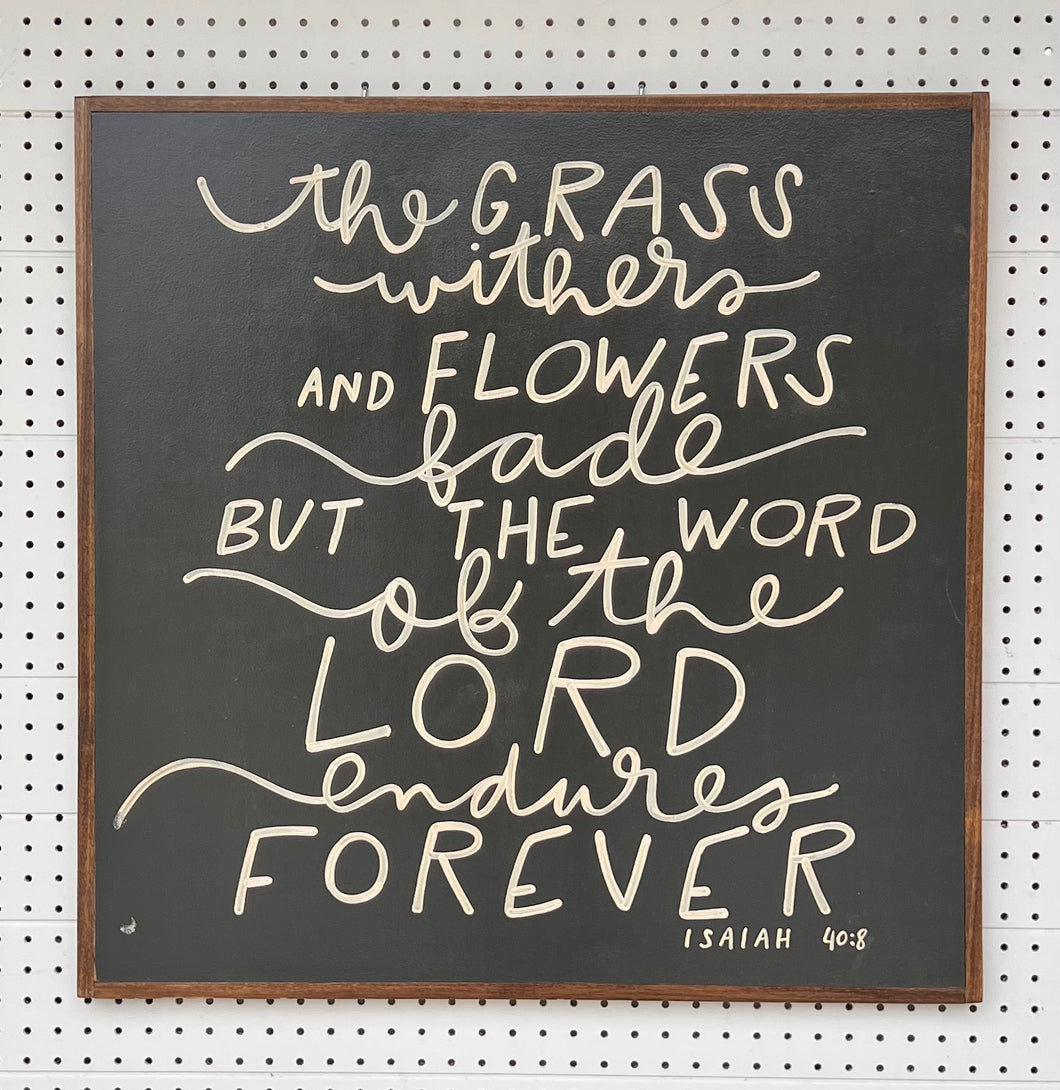 the GRASS
withers
AND FLOWERS
fade
BUT THE WORD
of the
LORD
endures
FOREVER
ISAIAH 40:8